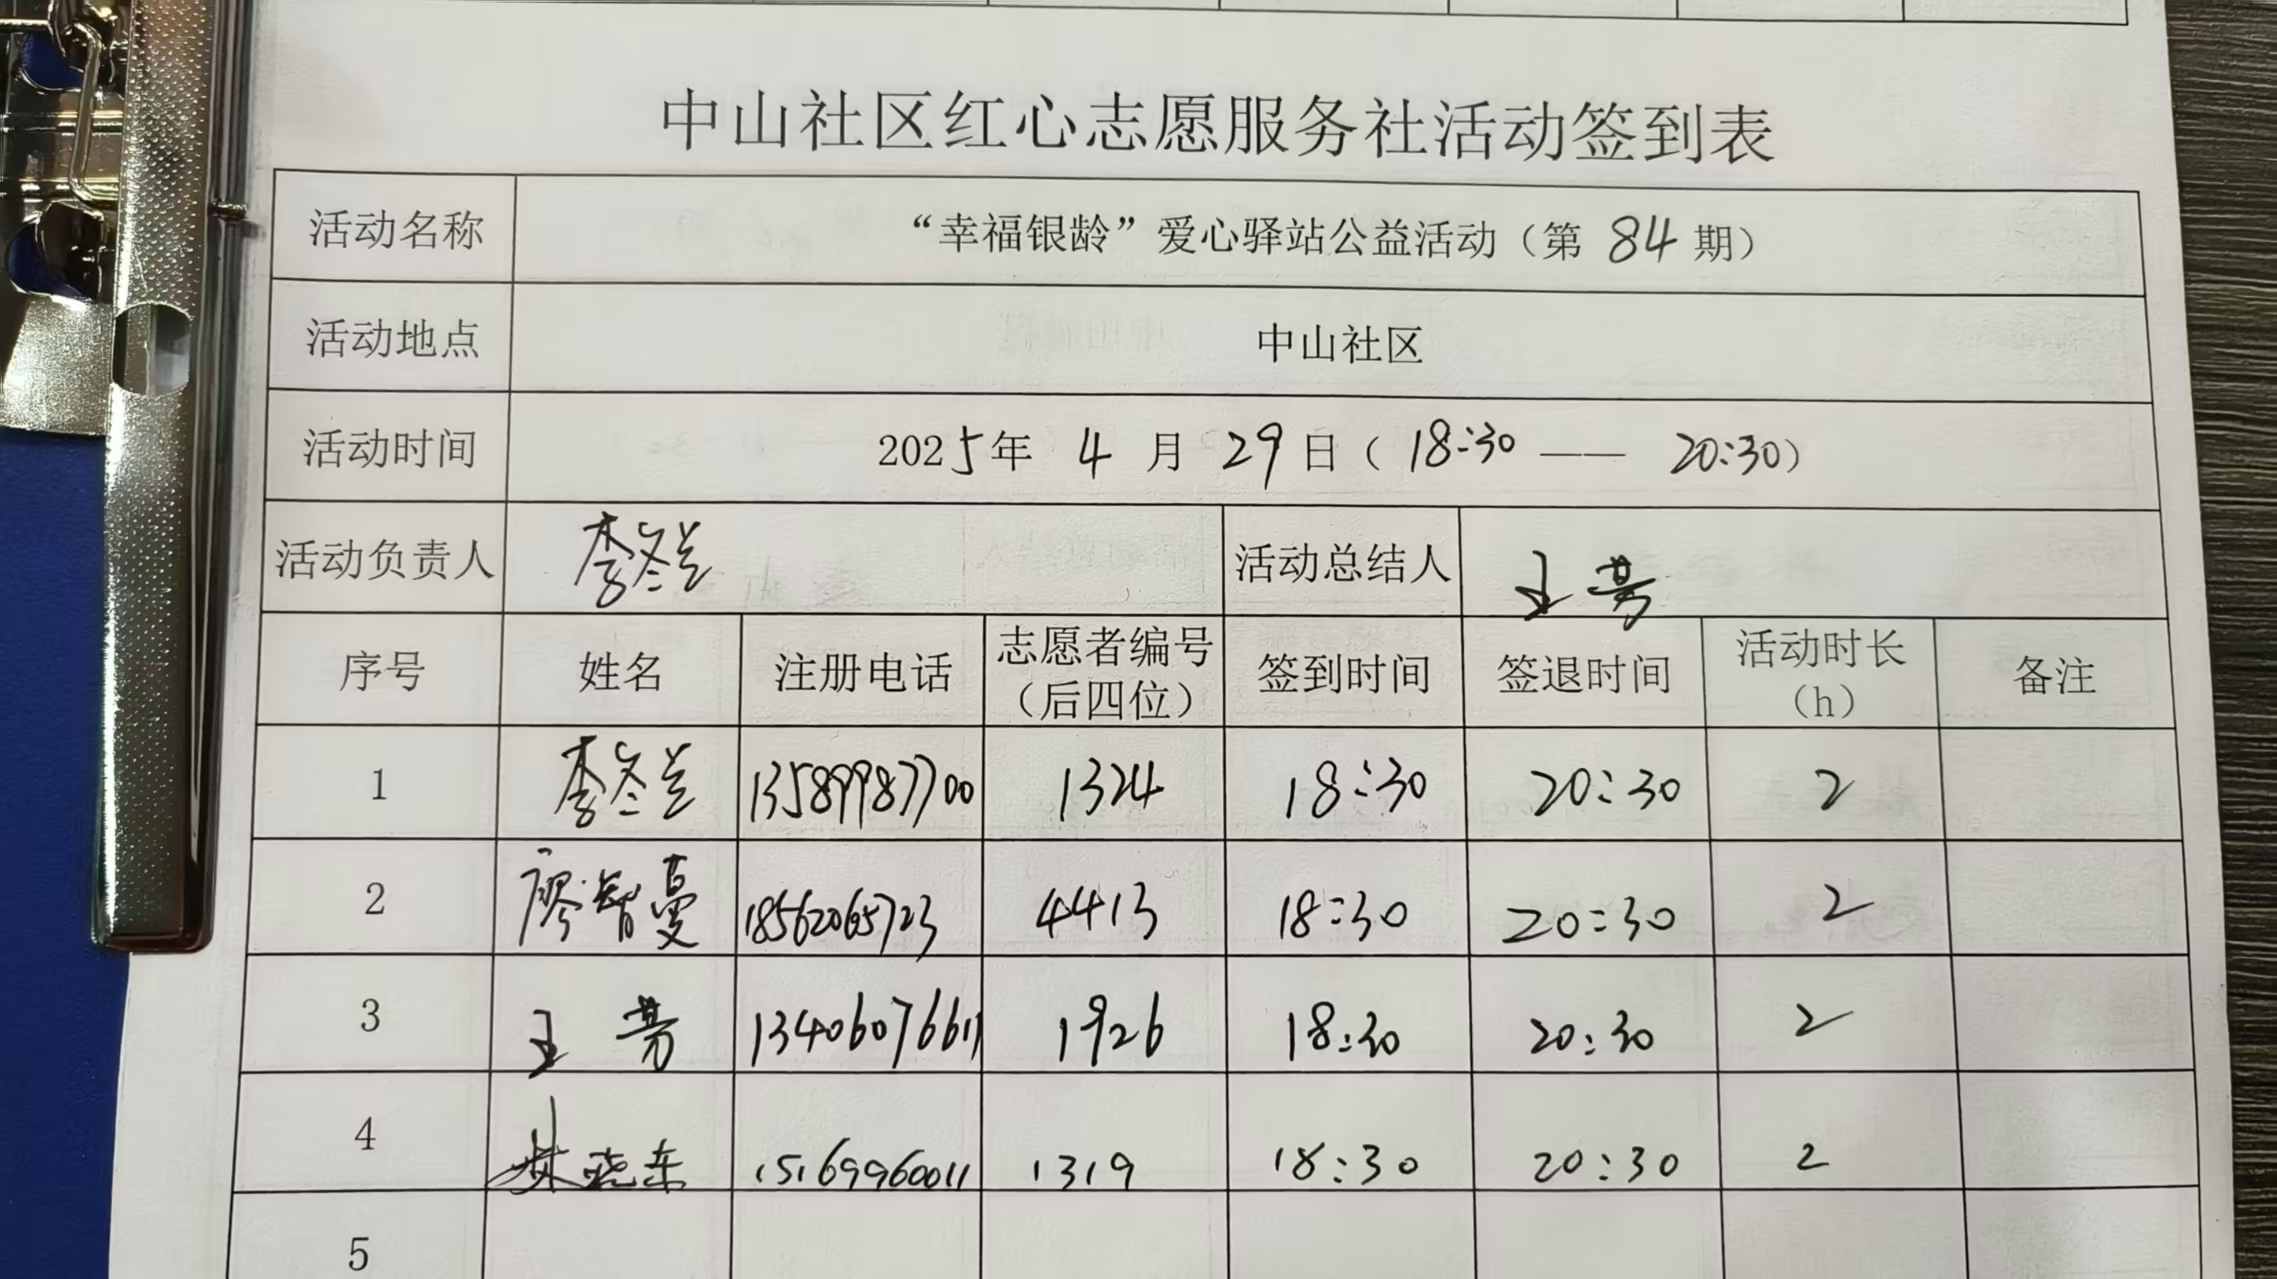 中山社区红心志愿服务社活动签到表
活动名称 “幸福银龄”爱心驿站公益活动（第 84 期）
活动地点 中山社区
活动时间 2025年 4 月 29 日（18:30 —— 20:30）
活动负责人 李冬兰 活动总结人 王芳
序号 姓名 注册电话 志愿者编号（后四位） 签到时间 签退时间 活动时长（h） 备注
1 李冬兰 13589987700 1324 18:30 20:30 2
2 廖智曼 18562065723 4413 18:30 20:30 2
3 王芳 13406076611 1926 18:30 20:30 2
4 林晓东 15169960011 1319 18:30 20:30 2
5